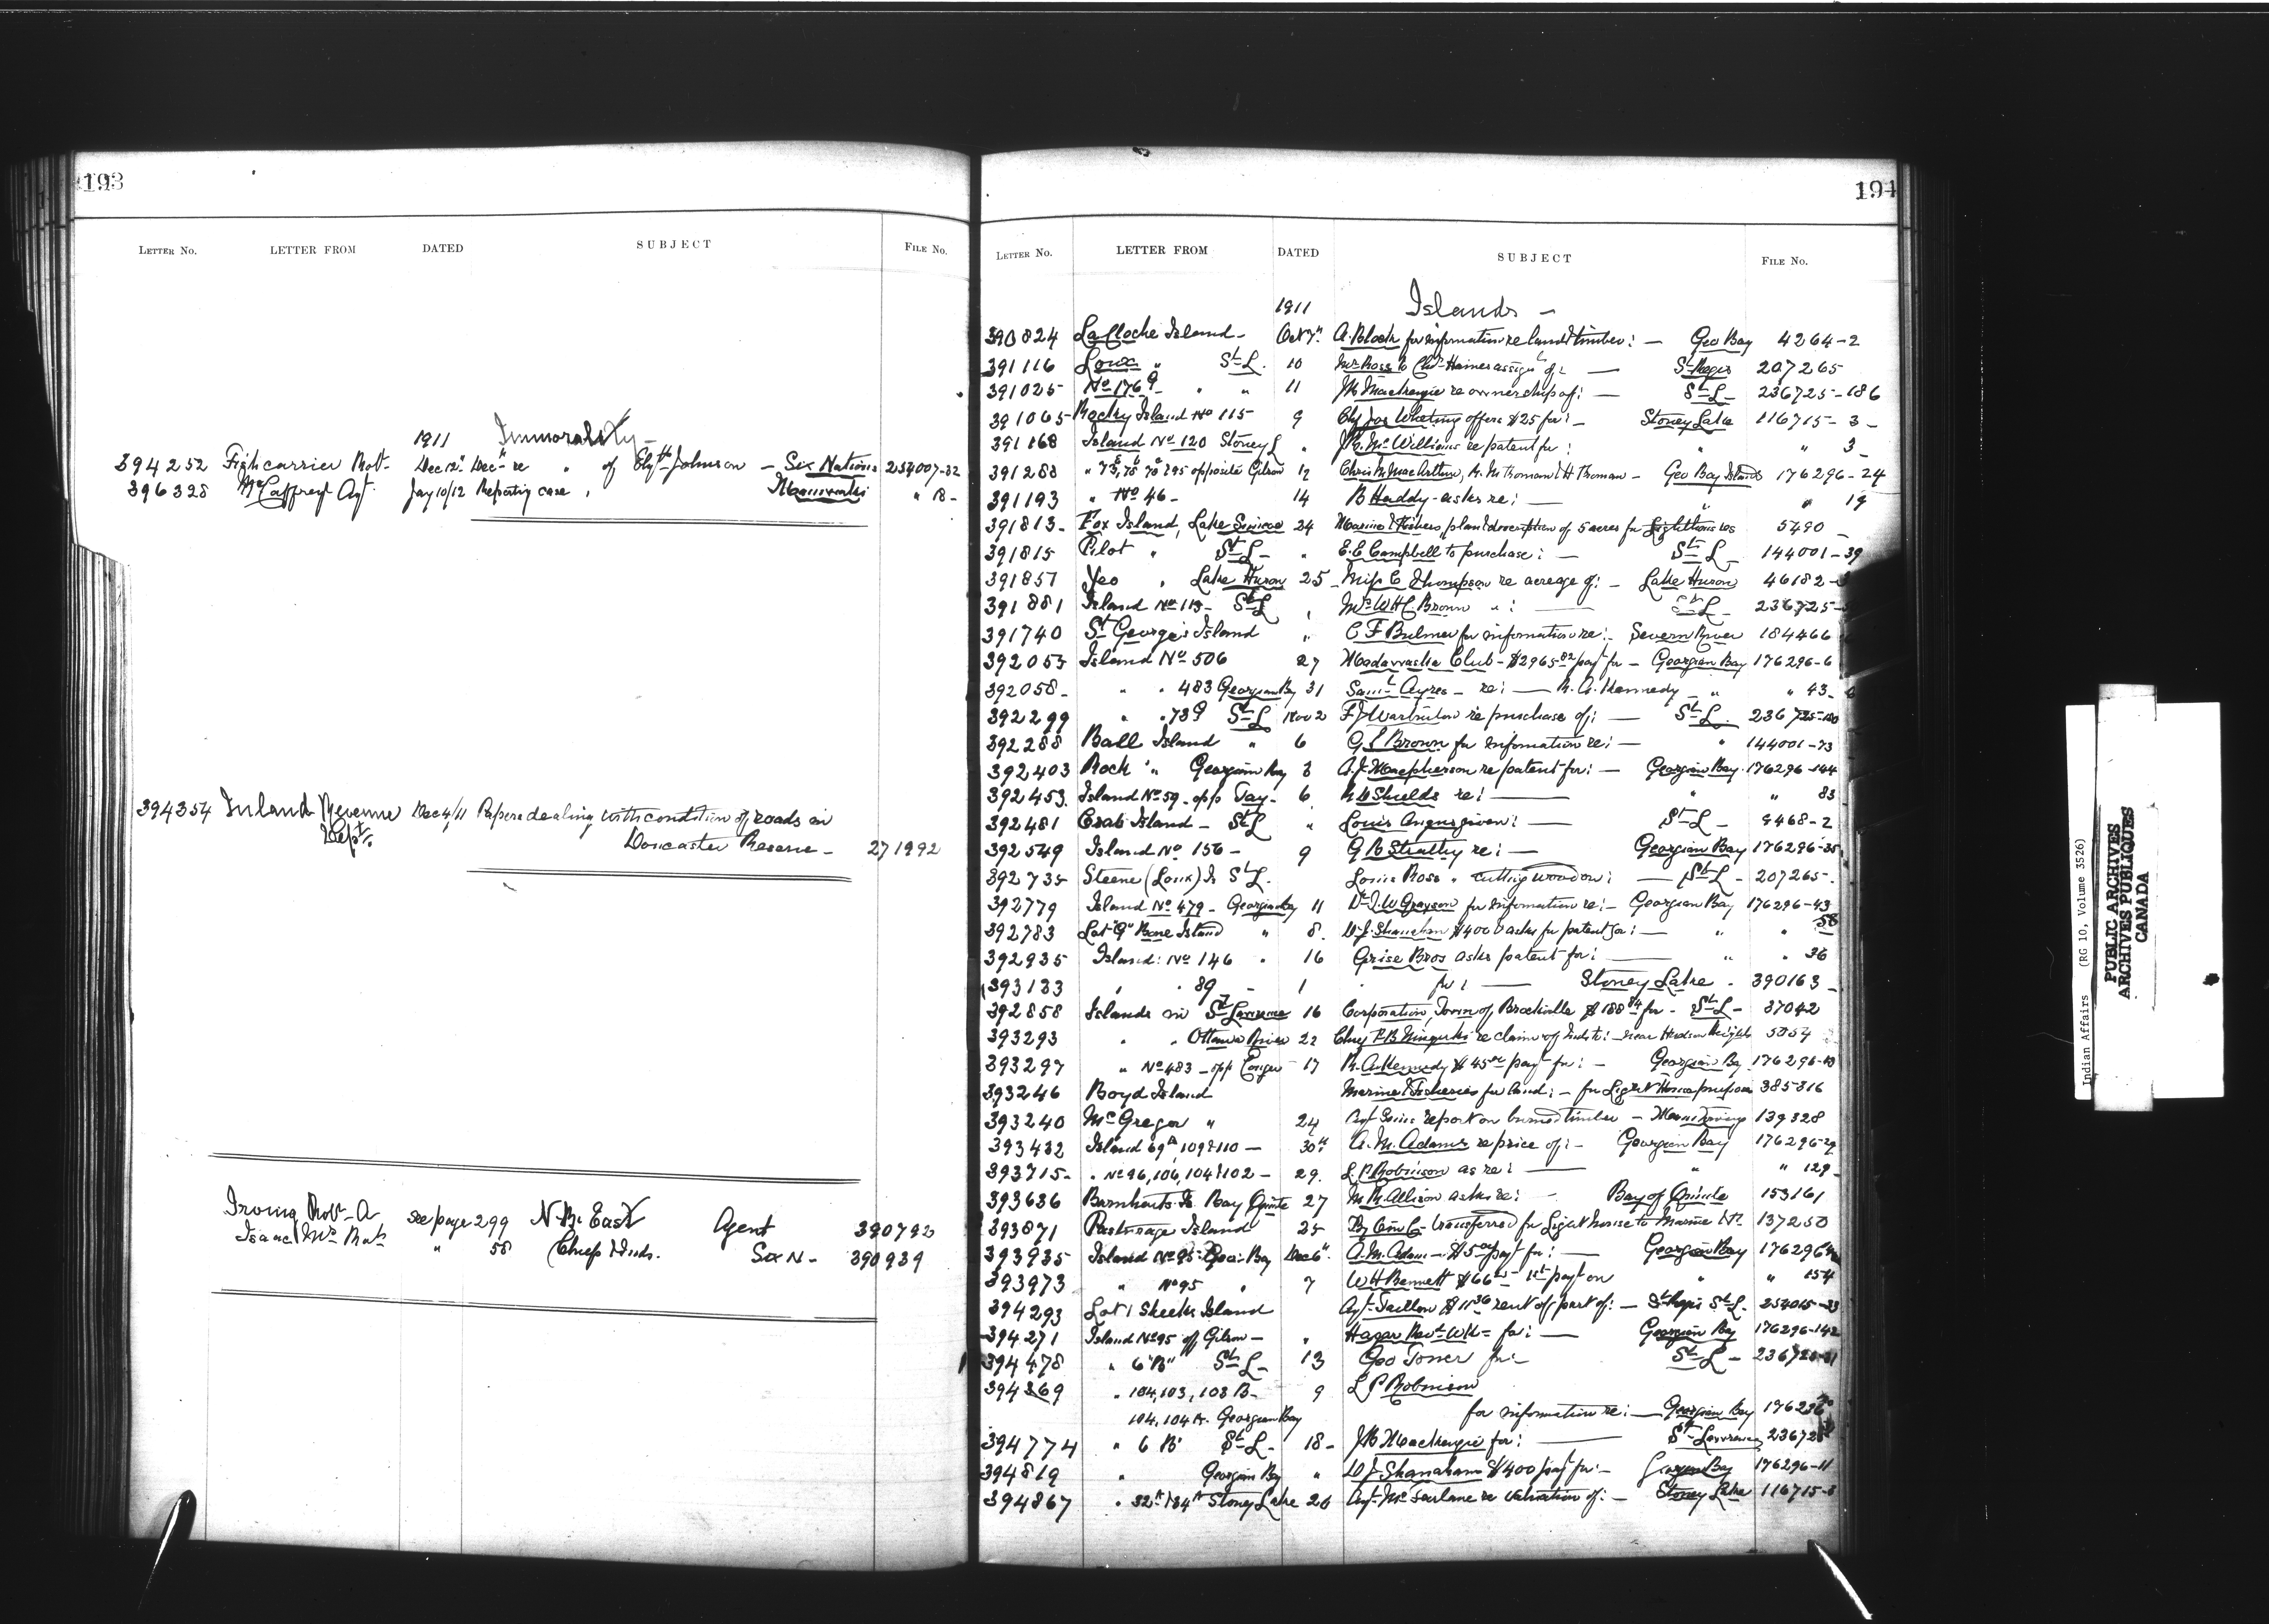 193
LETTER NO. LETTER FROM DATED SUBJECT FILE NO.
1911 Immorality -
394252 Fishcarrier Robt- Dec 12" Dec" re " of Elyth Johnson - Six Nations 254007-32
396328 McCaffrey Agt. Jay 10/12 Reporting case , Maniwaki " 18-
394354 Inland Revenue Dec 4/11 Papers dealing with condition of roads in
Dept. Doncaster Reserve - 271992
Irving Robt- A see page 299 N.B. East Agent 390792
Isaac Wm " 58 Chiefs & Inds. Six N- 390939
194
LETTER NO. LETTER FROM DATED SUBJECT FILE NO.
1911 Islands -
390824 LaCloche Island - Oct 7" A. Block for information re land & timber: - Geo Bay 4264-2
391116 " St L. 10 Mrs Ross to assign of: - St Regis 207265
391025 No 176 G " " 11 JB Mackenzie re ownership of: - St L - 236725-186
391065 Rocky Island No 115 9 Whetung offers $25 for: - Stoney Lake 116715-3-
391168 Island No 120 Stoney L " J.R. McWilliams re patent for: " 3
391288 opposite Gibson 12 Chris M MacArthur, - Geo Bay Islands 176296-24
391193 " No 46- 14 B Huddy - asks re: - " 19
391813- Fox Island, Lake Simcoe 24 Marine & Fishers plan & description of 5 acres for Lighthouse 5490 -
391815 Pilot " St L - " E.C. Campbell to purchase: - St L - 144001-39
391857 Yeo " Lake Huron 25 - Miss C Thompson re acreage of: - Lake Huron 46182-
391881 Island No 113- St L , Mrs WHC. Brown ": - St L - 236725-
391740 St George's Island " C F Bulmer for information re: - Severn River 184466
392053 Island No 506 27 Madawaska Club - $2965.82 payt for - Georgian Bay 176296-6
392058- " " 483 Georgian Bay 31 Saml Ayres - re: - R. A. Kennedy - " " 43-
392299 " " 73 G St L Nov 2 F J Warburton re purchase of: - St L. 236725-
392288 Ball Island " 6 G L Brown for information re: - " 144001-73
392403 Rock " Georgian Bay 3 A. J. Macpherson re patent for: - Georgian Bay 176296-144
392453 Island No 59 - opp Tay - 6 Shields re: - " " 83
392481 Crab Island - St L " Louis Angus given: - St L - 9468-2
392549 Island No 156 - 9 G B Strathy re: - Georgian Bay 176296-35
392735 Steene (Loux) Is St L. Louis Ross " cutting wood on: - St L - 207265-
392779 Island No 479 - Georgian Bay 11 Dr J. W Grayson for information re: - Georgian Bay 176296-43
392783 Lot "G" Bone Island " 8. D. J. Shanahan $400 asks for patent for: - " " 58
392935 Island: No 146 " 16 Grise Bros asks patent for: - " " 36
393133 " " 89 - 1 for: - Stoney Lake - 390163 -
392858 Islands in St Lawrence 16 Corporation, Town of Brockville $188.84 for - St L - 37042
393293 " " Ottawa River 22 Chief re claim of Inds to: - near Hudson Heights 5054
393297 " No 483 - opp Conger 17 R. A. Kennedy $45.00 payt for: - Georgian Bay 176296-43
393246 Boyd Island Marine & Fisheries for land: - for Light House purposes 385316
393240 McGregor " 24 Agt report on burned timber - 139328
393432 Island 69 A, 109 & 110 - 30th A. M. Adams re price of: - Georgian Bay 176296-29
393715- " No 96, 106, 104 & 102 - 29. L. P Robinson as re: - " " 129-
393636 Barnharts Is. Bay Quinte 27 M. R. Allison asks re: - Bay of Quinte 153161
393871 Pasturage Island 25 By transferred for Light house to Marine Dt. 137250
393935 Island No 95 - Geo - Bay Dec 6". A. M. Adam - payt for: - Georgian Bay 176296
393973 " No 95 " 7 W H Bennett $66 1st payt on " " 154
394293 Lot 1 Sheeks Island Agt Taillon $11.36 rent of part of: - St Regis St L. 254015-33
394271 Island No 95 off Gibson - " Hagar Revd WK- for: - Georgian Bay 176296-142
394478 " 6 "B" St L - 13 Geo Toner for: - St L - 236725-
394369 " 104, 103, 103 B - 9 L P Robinson
104, 104 A. Georgian Bay for information re: - Georgian Bay
394774 " 6 B" St L - 18 - JB Mackenzie for: - St Lawrence
394819 " Georgian Bay " D J Shanahan $400 payt for: - Georgian Bay 176296-11
394867 " 32 A & 34 A Stoney Lake 26 Agt McFarlane re valuation of: - Stoney Lake 116715-3
Indian Affairs (RG 10, Volume 3526)
PUBLIC ARCHIVES
ARCHIVES PUBLIQUES
CANADA